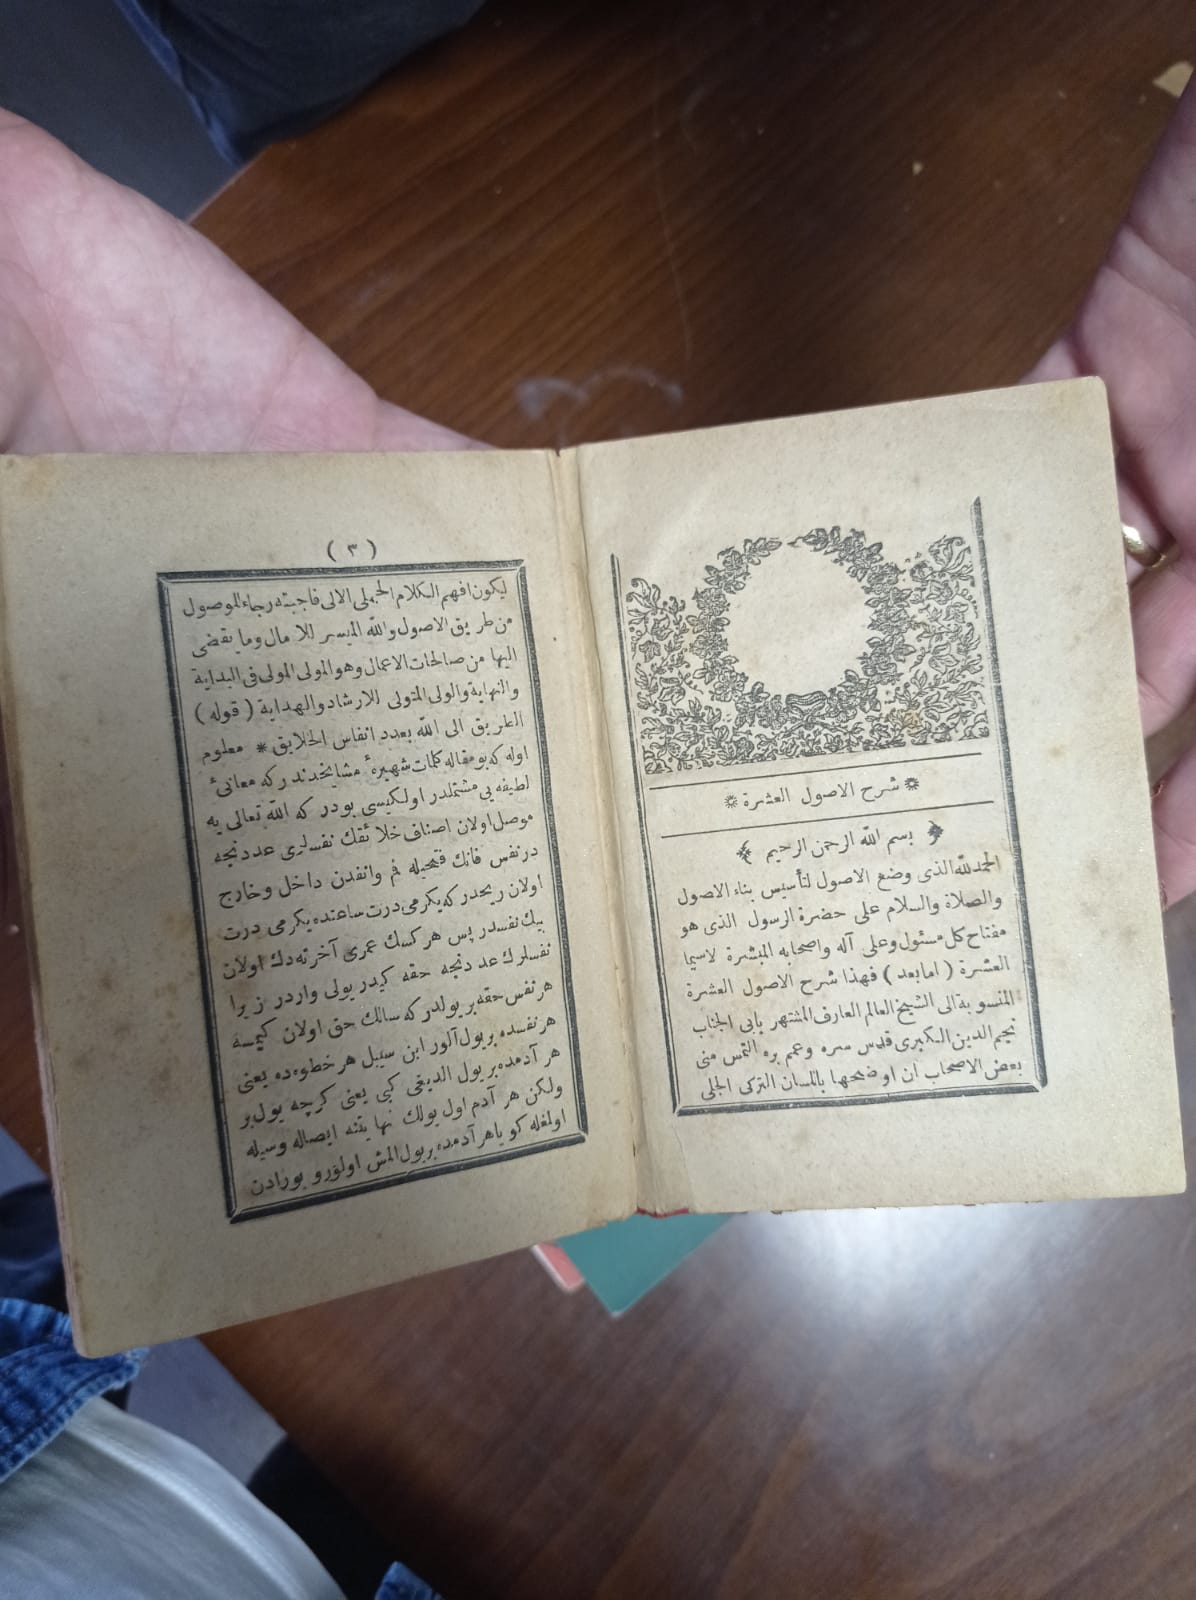 شرح الاصول العشرة
بسم الله الرحمن الرحيم
الحمد لله الذى وضع الاصول لتأسيس بناء الاصول
والصلاة والسلام على حضرة الرسول الذى هو
مفتاح كل مسئول وعلى آله واصحابه المبشرة لاسيما
العشرة ( امابعد ) فهذا شرح الاصول العشرة
المنسوبة الى الشيخ العالم العارف المشتهر بابى الجناب
نجيم الدين الكبرى قدس سره وعمم بره التمس منى
بعض الاصحاب ان اوضحها باللسان التركى الجلى
( ٣ )
ليكون افهم الكلام الجملى الالى فاجبته رجاء الموصول
من طريق الاصول والله الميسر للامال وما يقضى
اليها من صالحات الاعمال وهو المولى المولى فى البداية
والنهاية والولى المتولى للارشاد والهداية ( قوله )
الطريق الى الله بعدد انفاس الخلايق * معلوم
اوله كه بو مقاله كلمات شهيرهٔ مشايخدندر كه معانئ
لطيفه يى مشتملدر اولكيسى بودر كه الله تعالى يه
موصل اولان اصناف خلائقك نفسلرى عددنجه
در نفس فانك فتحيله فم وانفدن داخل وخارج
اولان ريحدر كه يكرمى درت ساعتده يكرمى درت
بيك نفسدر پس هر كسك عمرى آخرته دك اولان
نفسلرك عددنجه حقه كيدر يولى واردر زيرا
هر نفس حقه بر يولدر كه سالك حق اولان كيمسه
هر نفسده بر يول آلور ابن سبيل هر خطوه ده يعنى
هر آدمده بر يول الديغى كبى يعنى كرچه يول بر
ولكن هر آدم اول يولك نهايتنه ايصاله وسيله
اولمغله كويا هر آدمده بر يول المش اولور و بورادن